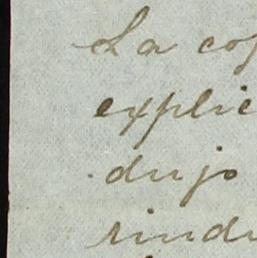 La cop
explic
dujo
rindi